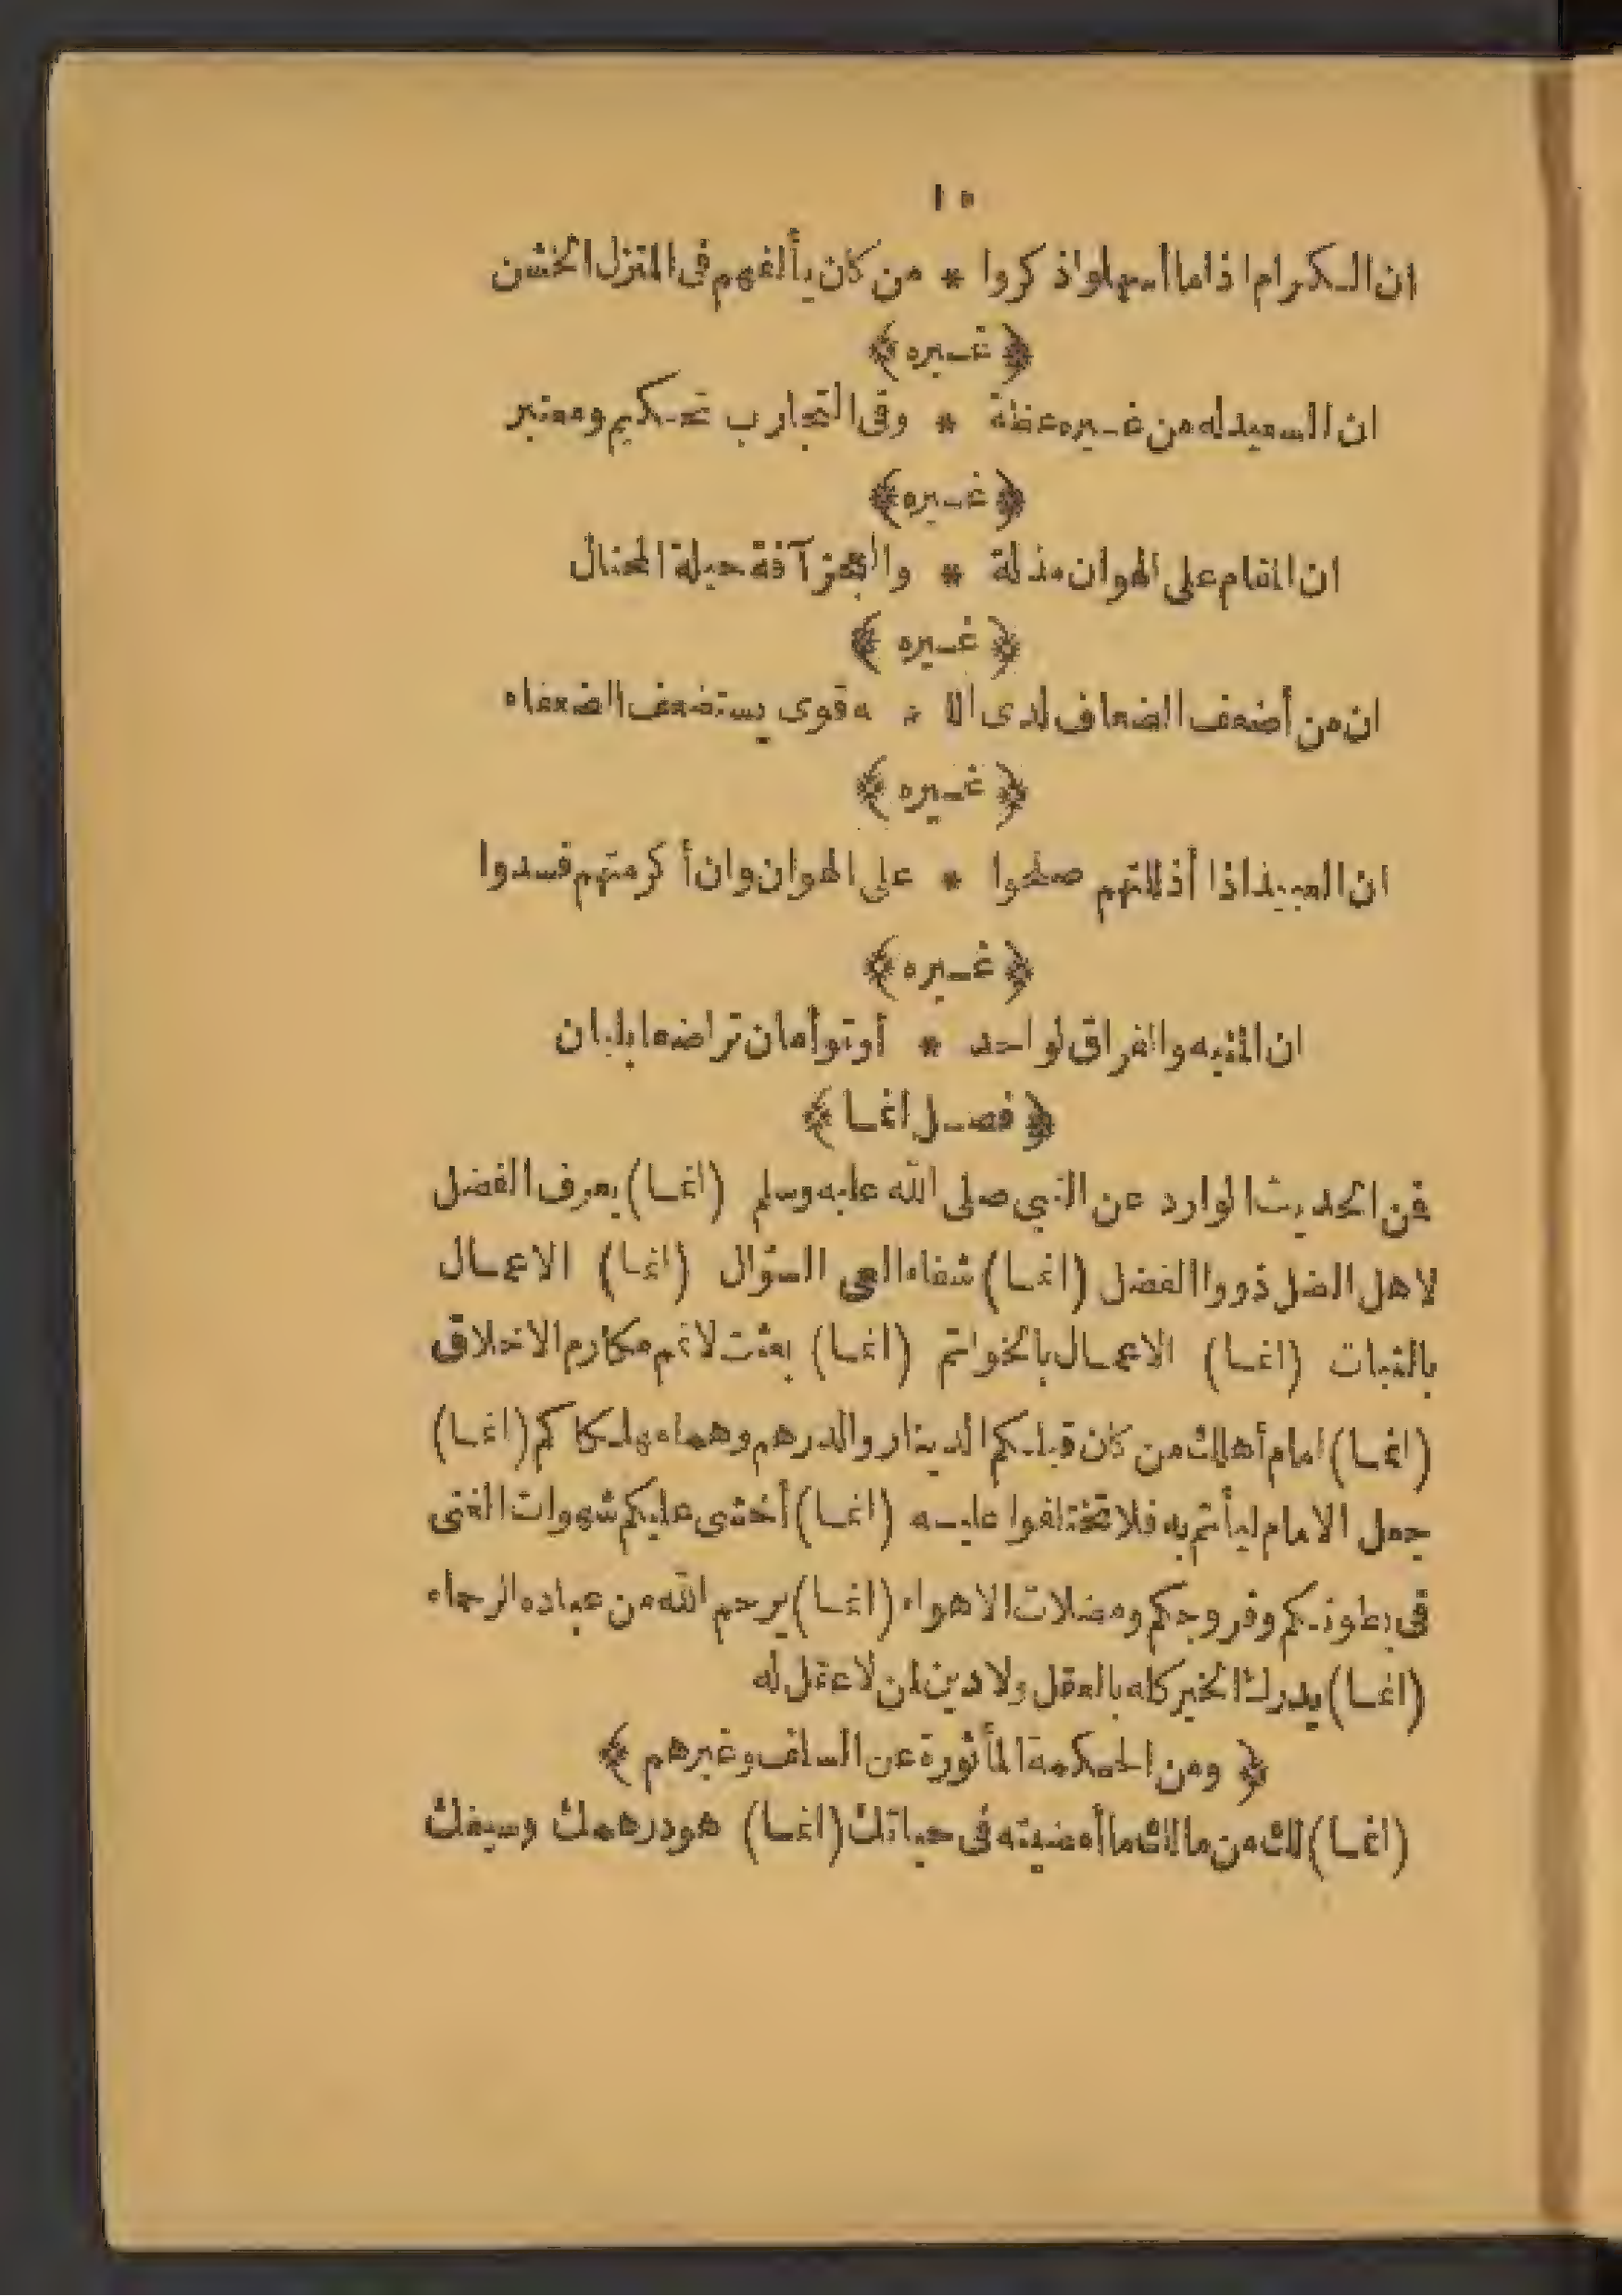 ١٥
ان الكرام اذا ما أسهلوا ذكروا * من كان يألفهم فى المنزل الخشن
﴿ غيره ﴾
ان السعيد له من غيره عظة * وفى التجارب تحكيم ومعتبر
﴿ غيره ﴾
ان المقام على الهوان مذلة * والعجز آفة حيلة المحتال
﴿ غيره ﴾
ان من أضعف الضعاف لدى الل * ه قوى يستضعف الضعفاء
﴿ غيره ﴾
ان العبيد اذا أذللتهم صلحوا * على الهوان وان أكرمتهم فسدوا
﴿ غيره ﴾
ان المنيه والفراق لواحد * أو توأمان تراضعا بلبان
﴿ فصل انما ﴾
فمن الحديث الوارد عن النبي صلى الله عليه وسلم (انما) يعرف الفضل
لاهل الفضل ذووا الفضل (انما) شفاء العى السؤال (انما) الاعمال
بالنيات (انما) الاعمال بالخواتم (انما) بعثت لاتمم مكارم الاخلاق
(انما) أهلك من كان قبلكم الدينار والدرهم وهما مهلكاكم (انما)
جعل الامام ليأتم به فلا تختلفوا عليه (انما) أخشى عليكم شهوات الغى
فى بطونكم وفروجكم ومضلات الاهواء (انما) يرحم الله من عباده الرحماء
(انما) يدرك الخير كله بالعقل ولا دين لمن لا عقل له
﴿ ومن الحكمة المأثورة عن السلف وغيرهم ﴾
(انما) لك من مالك ما أمضيته فى حياتك (انما) هو درهمك وسيفك